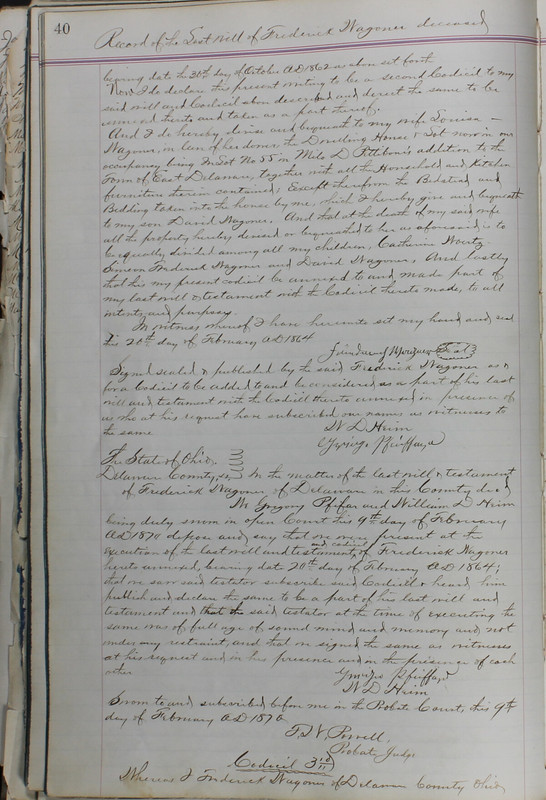 40
Record of the Last Will of Frederick Wagoner deceased
bearing date the 30th day of October AD 1862 as above set forth
Now I do declare this present writing to be a second Codicil to my
said will and Codicil above described and direct the same to be
annexed thereto and taken as a part thereof.
And I do hereby devise and bequeath to my wife Louisa
Wagoner, in lieu of her dower the Dwelling House & Lot now in our
occupancy being In Lot No 55 in Milo D Pettibone's addition to the
Town of East Delaware, together with all the Household and Kitchen
furniture therein contained, Except therefrom the Bedstead and
Bedding taken into the house by me, which I hereby give and bequeath
to my son David Wagoner. And that at the death of my said wife
all the property hereby devised or bequeathed to her as aforesaid, is to
be equally divided among all my children, Catherine
Frederick Wagoner and David Wagoner, And lastly
that this my present codicil be annexed to and made part of
my last will & testament with the Codicil thereto made, to all
intents and purposes.
In witness whereof I have hereunto set my hand and seal
this 20th day of February AD 1864
Seal
Signed sealed & published by the said Frederick Wagoner as &
for a Codicil to be added to and be considered as a part of his last
will and testament with the Codicil thereto annexed in presence of
us who at his request have subscribed our names as witnesses to
the same
W D Heim
The State of Ohio
Delaware County, ss, In the matter of the last will & testament
of Frederick Wagoner, of Delaware in this County decd
We Gregory and William D Heim
being duly sworn in open Court this 9th day of February
AD 1870 depose and say that we were present at the
and codicil
execution of the last will and testament, of Frederick Wagoner
hereto annexed, bearing date 20th day of February AD 1864;
that we saw said testator subscribe said Codicil & heard him
publish and declare the same to be a part of his last will and
testament and that the said testator at the time of executing the
same was of full age of sound mind and memory and not
under any restraint, and that we signed the same as witnesses
at his request and in his presence and in the presence of each
other
W D Heim
Sworn to and subscribed before me in the Probate Court, this 9th
day of February AD 1870
T. W. Powell,
Probate Judge
Codicil 3rd
Whereas I Frederick Wagoner of Delaware County Ohio